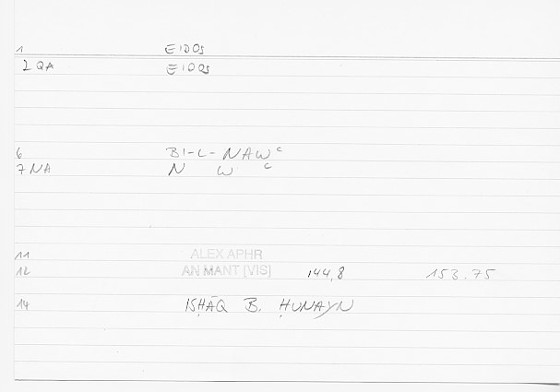 1 EIDOS
2 QA EIDOS
6 BI-L-NAWᶜ
7 NA N W ᶜ
11 ALEX APHR
12 AN MANT (VIS) 144,8 153.75
14 ISḤĀQ B. ḤUNAYN